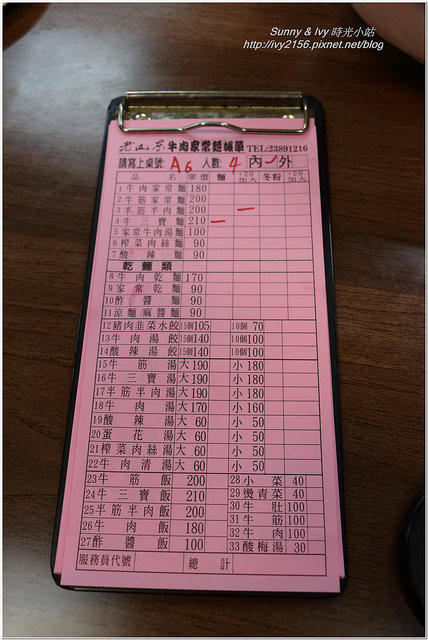 Sunny & Ivy 時光小站
http://ivy2156.pixnet.net/blog
老山東牛肉家常麵帳單 TEL:23891216
請寫上桌號: A6 人數: 4 內 外
品名 單價 麵 +20加大 冬粉 +20加大
1牛肉家常麵 180
2牛筋家常麵 200
3半筋半肉麵 200
4牛三寶麵 210
5家常牛肉湯麵 100
6榨菜肉絲麵 90
7酸辣麵 90
乾麵類
8牛肉乾麵 170
9家常乾麵 90
10酢醬麵 90
11涼麵/麻醬麵 90
12豬肉韭菜水餃 15個105 10個 70
13牛肉湯餃 15個140 10個100
14酸辣湯餃 15個140 10個100
15牛筋湯 大 190 小 180
16牛三寶湯 大 190 小 180
17半筋半肉湯 大 190 小 180
18牛肉湯 大 170 小 160
19酸辣湯 大 60 小 50
20蛋花湯 大 60 小 50
21榨菜肉絲湯 大 60 小 50
22牛肉清湯 大 60 小 50
23牛筋飯 200 28小菜 40
24牛三寶飯 210 29燙青菜 40
25半筋半肉飯 200 30牛肚 100
26牛肉飯 180 31牛筋 100
27酢醬飯 100 32牛肉 100
33酸梅湯 30
服務員代號 總計